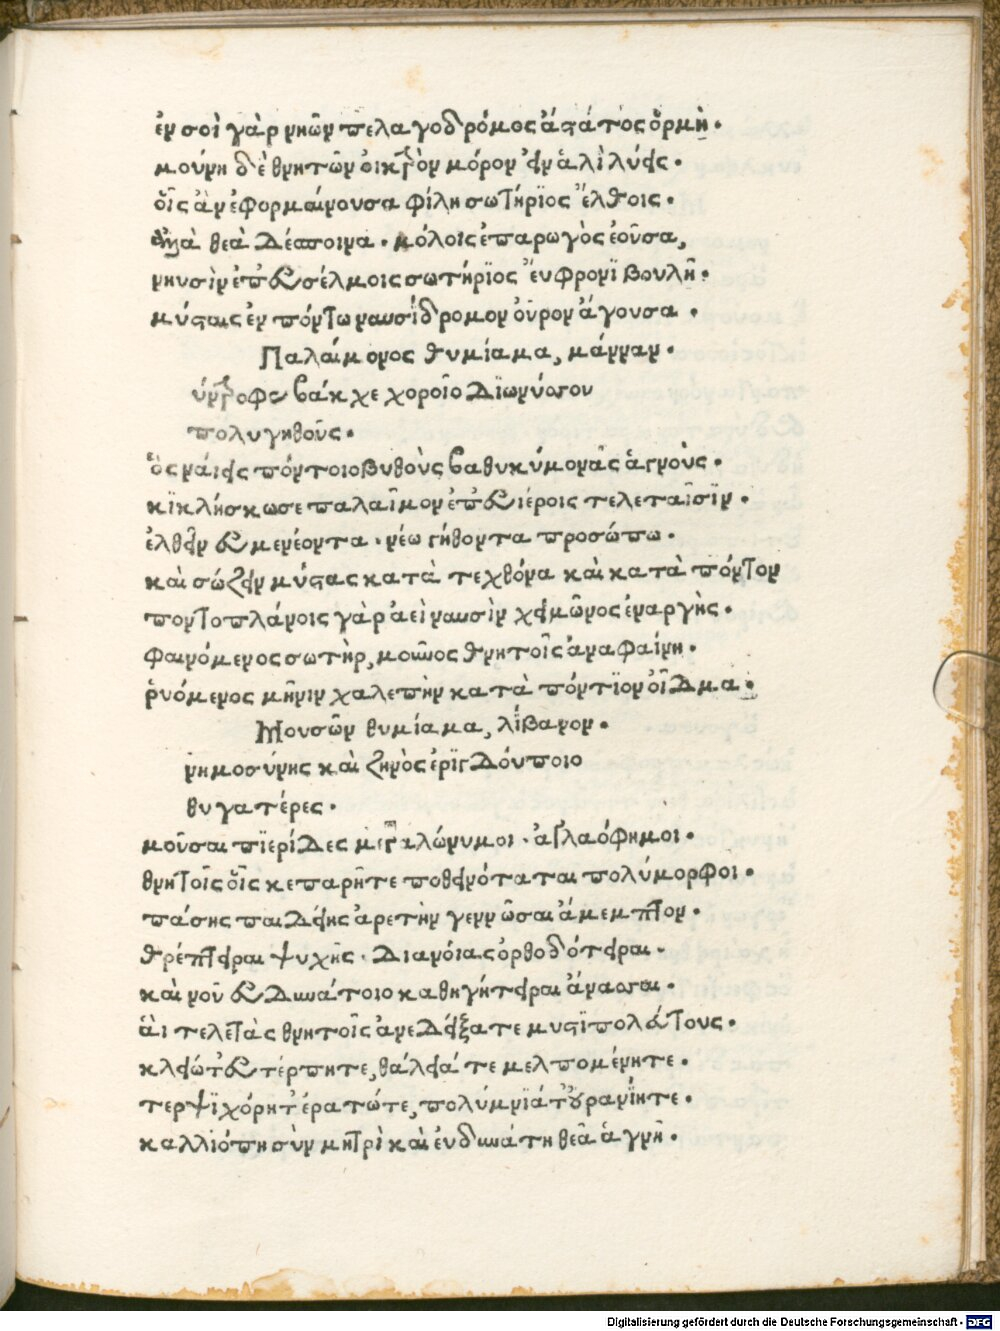 ἐν σοὶ γὰρ νηῶν πελαγοδρόμος ἄστατος ὁρμή.
μούνη δὲ θνητῶν οἰκτρὸν μόρον εἰν ἁλὶ λύεις.
οἷς ἂν ἐφορμαίνουσα φίλη σωτήριος ἔλθοις.
ἀλλὰ θεὰ δέσποινα. μόλοις ἐπαρωγὸς ἐοῦσα,
νηυσὶν ἐπ' εὐσέλμοις σωτήριος εὔφρονϊ βουλῇ.
μύσταις ἐν πόντω ναυσίδρομον οὖρον ἄγουσα.
Παλαίμονος θυμίαμα, μάνναν.
ύντροφε βάκχε χοροῖο Διωνύσου
πολυγηθοῦς.
ὃς ναίεις πόντοιο βυθοὺς βαθυκύμονας ἁγνούς.
κϊκλήσκω σε παλαῖμον ἐπ' εὐιέροις τελεταῖσϊν.
ἐλθεῖν εὐμενέοντα. νέω γήθοντα προσώπω.
καὶ σώζειν μύστας κατὰ τε χθόνα καὶ κατὰ πόντον
ποντοπλάνοις γὰρ ἀεὶ ναυσὶν χειμῶνος ἐναργὴς.
φαινόμενος σωτὴρ, μοῦνος θνητοῖς ἀναφαίνη.
ῥυόμενος μῆνιν χαλεπὴν κατὰ πόντϊον οἶδμα.
Μουσῶν θυμίαμα, λίβανον.
νημοσύνης καὶ ζηνὸς ἐρϊγδούποιο
θυγατέρες.
μοῦσαι πϊερίδες μεγαλώνυμοι. ἀγλαόφημοι.
θνητοῖς οἷς κε παρῆτε ποθεινόταται πολύμορφοι.
πάσης παιδείης ἀρετὴν γεννῶσαι ἄμεμπτον.
θρέπτειραι ψυχῆς. διανοίας ὀρθοδότειραι.
καὶ νοῦ εὐδυνάτοιο καθηγήτειραι ἄνασσαι.
ἁὶ τελετὰς θνητοῖς ἀνεδείξατε μυστϊπολεύτους.
κλειώ τ' εὐτέρπη τε, θάλεια τε μελπομένη τε.
τερψϊχόρη τ' ἐρατώ τε, πολύμνϊά τ' οὐρανίη τε.
καλλιόπη σὺν μητρὶ καὶ εὐδυνάτη θεᾶ ἁγνῇ.
Digitalisierung gefördert durch die Deutsche Forschungsgemeinschaft - DFG